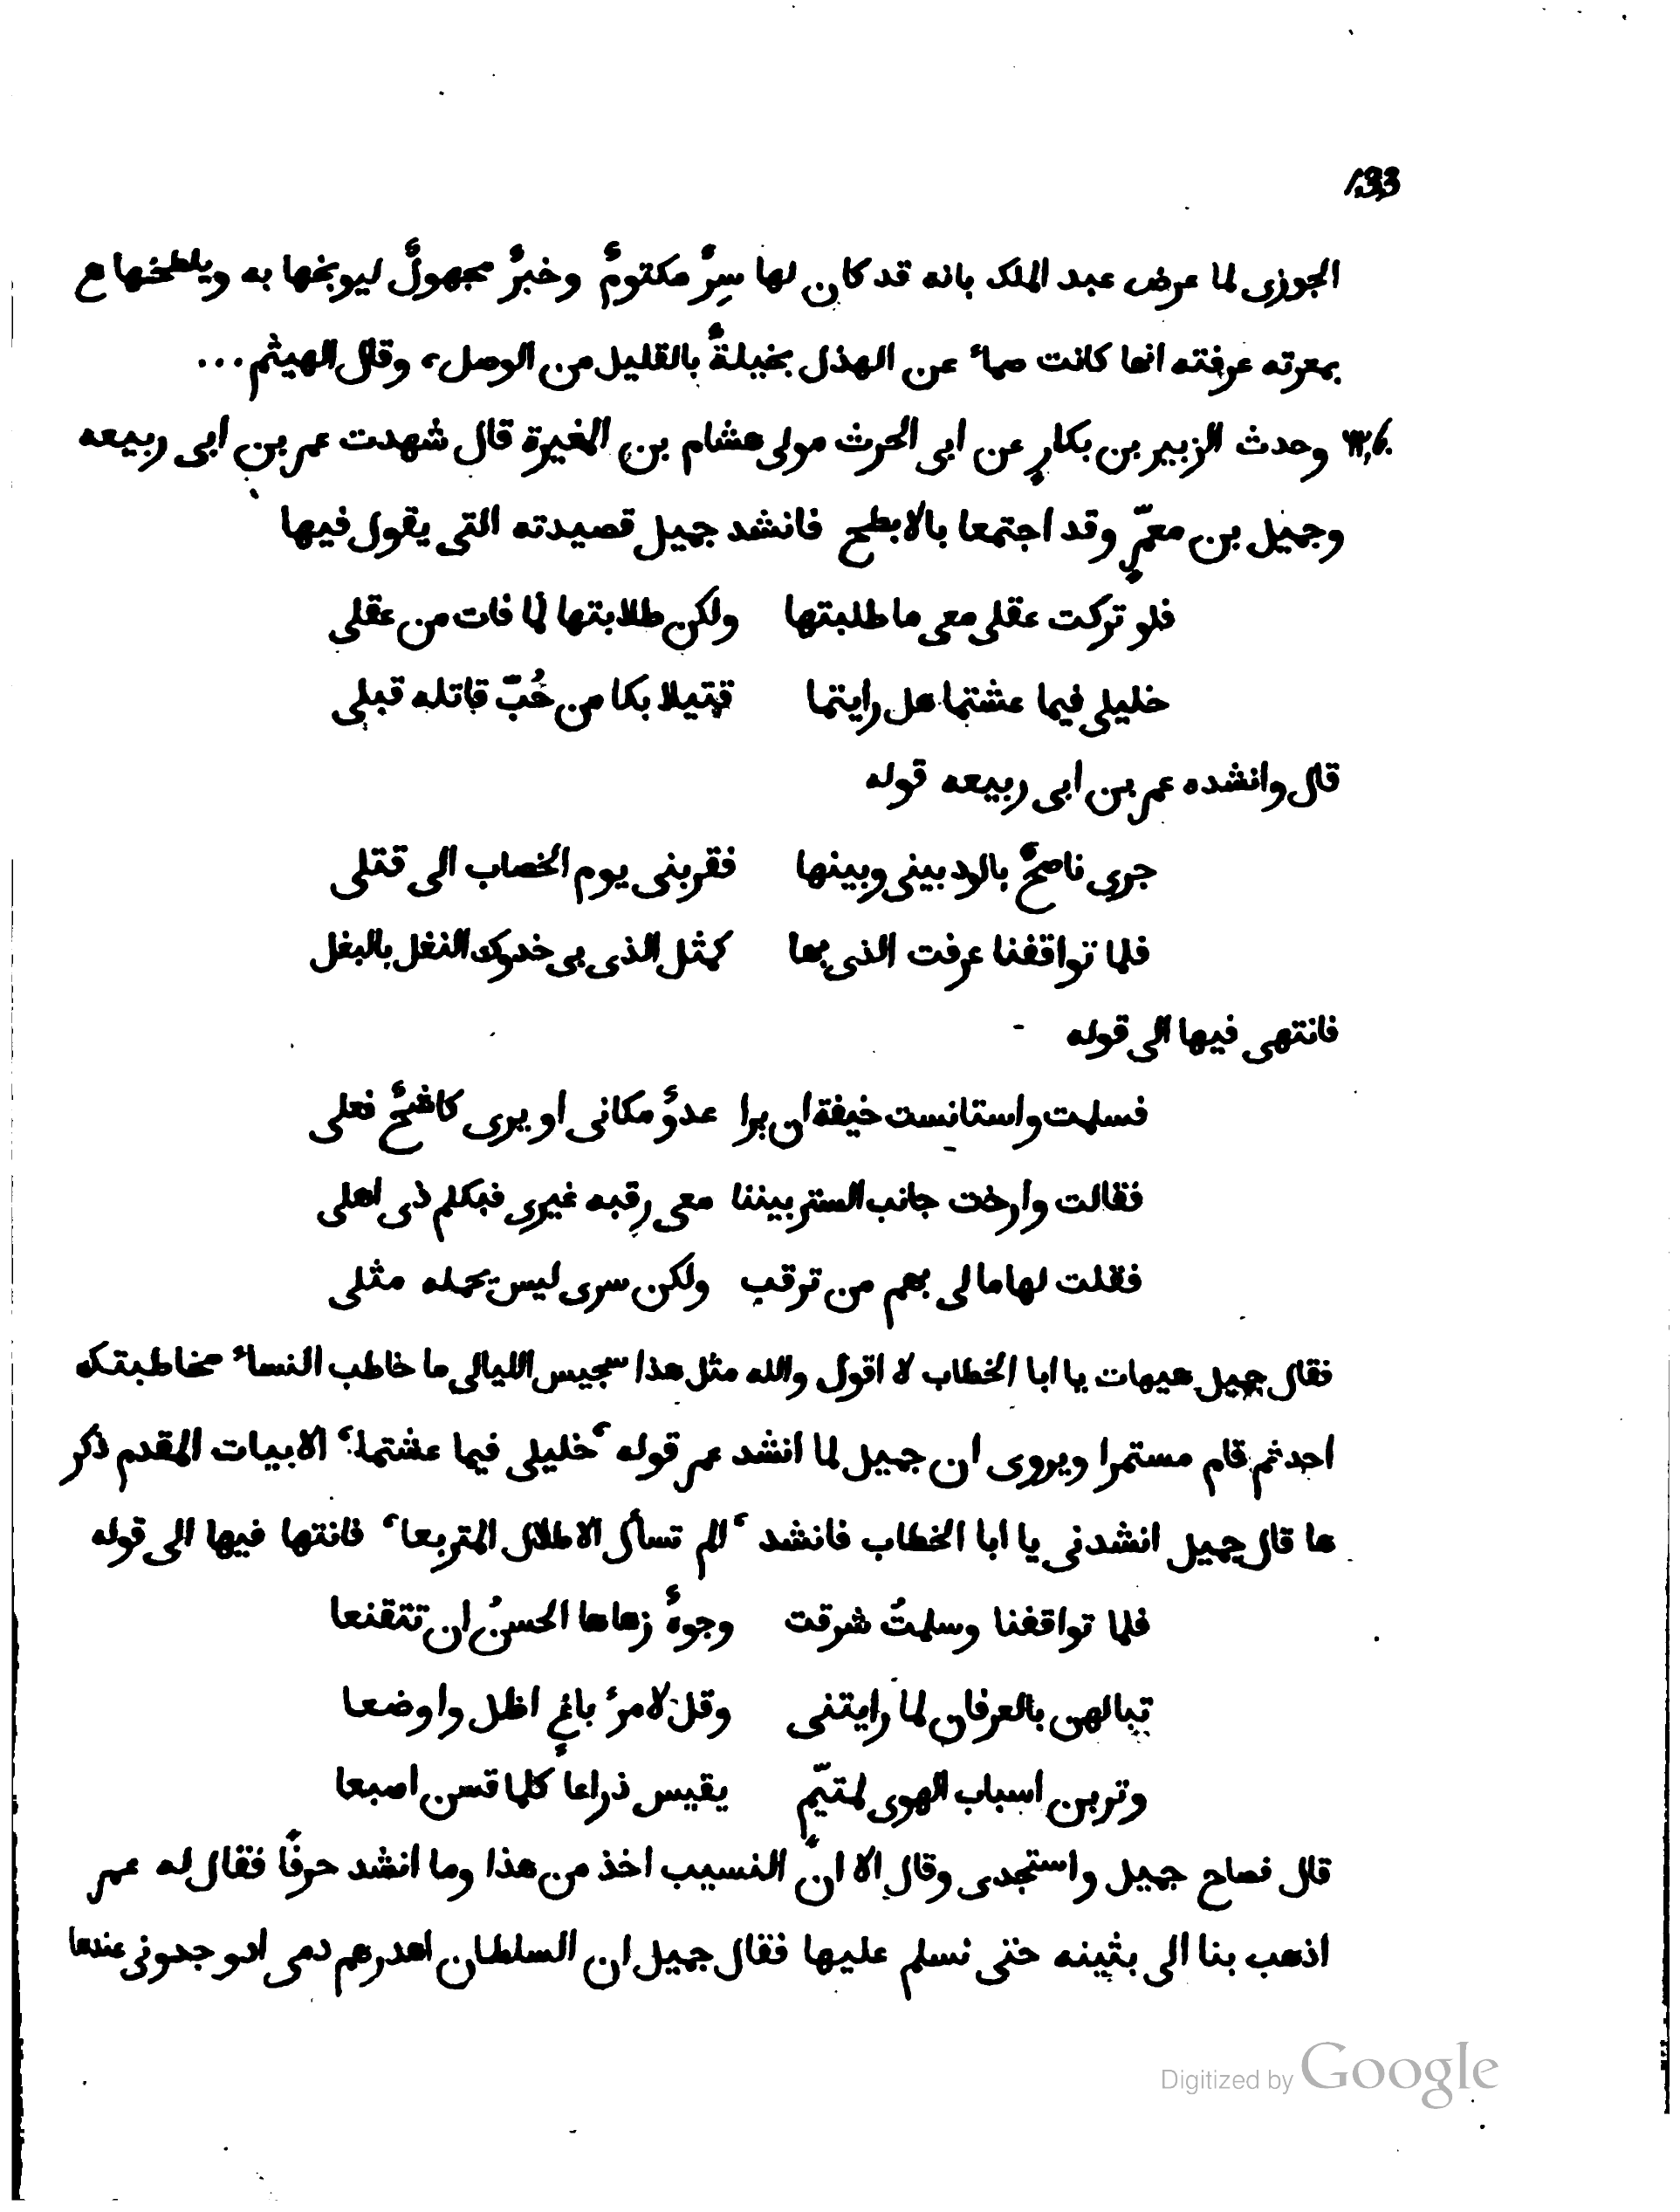 133
الجوزى لما عرض عبد الملك بانه قد كان لها سِرٌ مكتومٌ وخبرٌ مجهولٌ ليوبخها به ويلطخها مع
بمعرته عرفته انها كانت صماء عن الهذل بخيلةٌ بالقليل من الوصل، وقال الهيثم...
وحدث الزبير بن بكارٍ عن ابى الحرث مولى هشام بن المغيرة قال شهدت عمر بن ابى ربيعه
وجميل بن معمّرٍ وقد اجتمعا بالابطح فانشد جميل قصيدته التى يقول فيها
فلو تركت عقلى معى ما طلبتها ولكن طلابتها لما فات من عقلى
خليلى فيما عشتما هل رايتما قتيلا بكا من حُبّ قاتله قبلى
قال وانشده عمر بن ابى ربيعه قوله
جرى ناصحٌ بالود بينى وبينها فقربنى يوم الخصاب الى قتلى
فلما تواقفنا عرفت الذى بها كمثل الذى بى خدوك النغل بالبغل
فانتهى فيها الى قوله
فسلمت واستانست خيفة ان يرا عدوٌ مكانى او يرى كاشحٌ فعلى
فقالت وارخت جانب الستر بيننا معى رقبه غيرى فبكلم ذى اهلى
فقلت لها مالى بهم من ترقب ولكن سرى ليس يحمله مثلى
فقال جميل هيهات يا ابا الخطاب لا اقول والله مثل هذا سجيس الليالى ما خاطب النساء مخاطبتك
احد ثم قام مستمرا ويروى ان جميل لما انشد عمر قوله ‘خليلى فيما عشتما‘ الابيات المقدم ذكر
ها قال جميل انشدنى يا ابا الخطاب فانشد ‘الم تسأل الاطلال المتربعا‘ فانتها فيها الى قوله
فلما تواقفنا وسلمتُ شرقت وجوهٌ زهاها الحسنُ ان تتقنعا
تبالهن بالعرفان لما رايتنى وقلن لامرء باغٍ اظل واوضعا
وتربن اسباب الهوى لمتيّمٍ يقيس ذراعاً كلما قسن اصبعا
قال فصاح جميل واستجدى وقال الا انّ النسيب اخذ من هذا وما انشد حرفًا فقال له عمر
اذهب بنا الى بثينه حتى نسلم عليها فقال جميل ان السلطان اهدرهم دمى ان وجدونى عندها
Digitized by Google